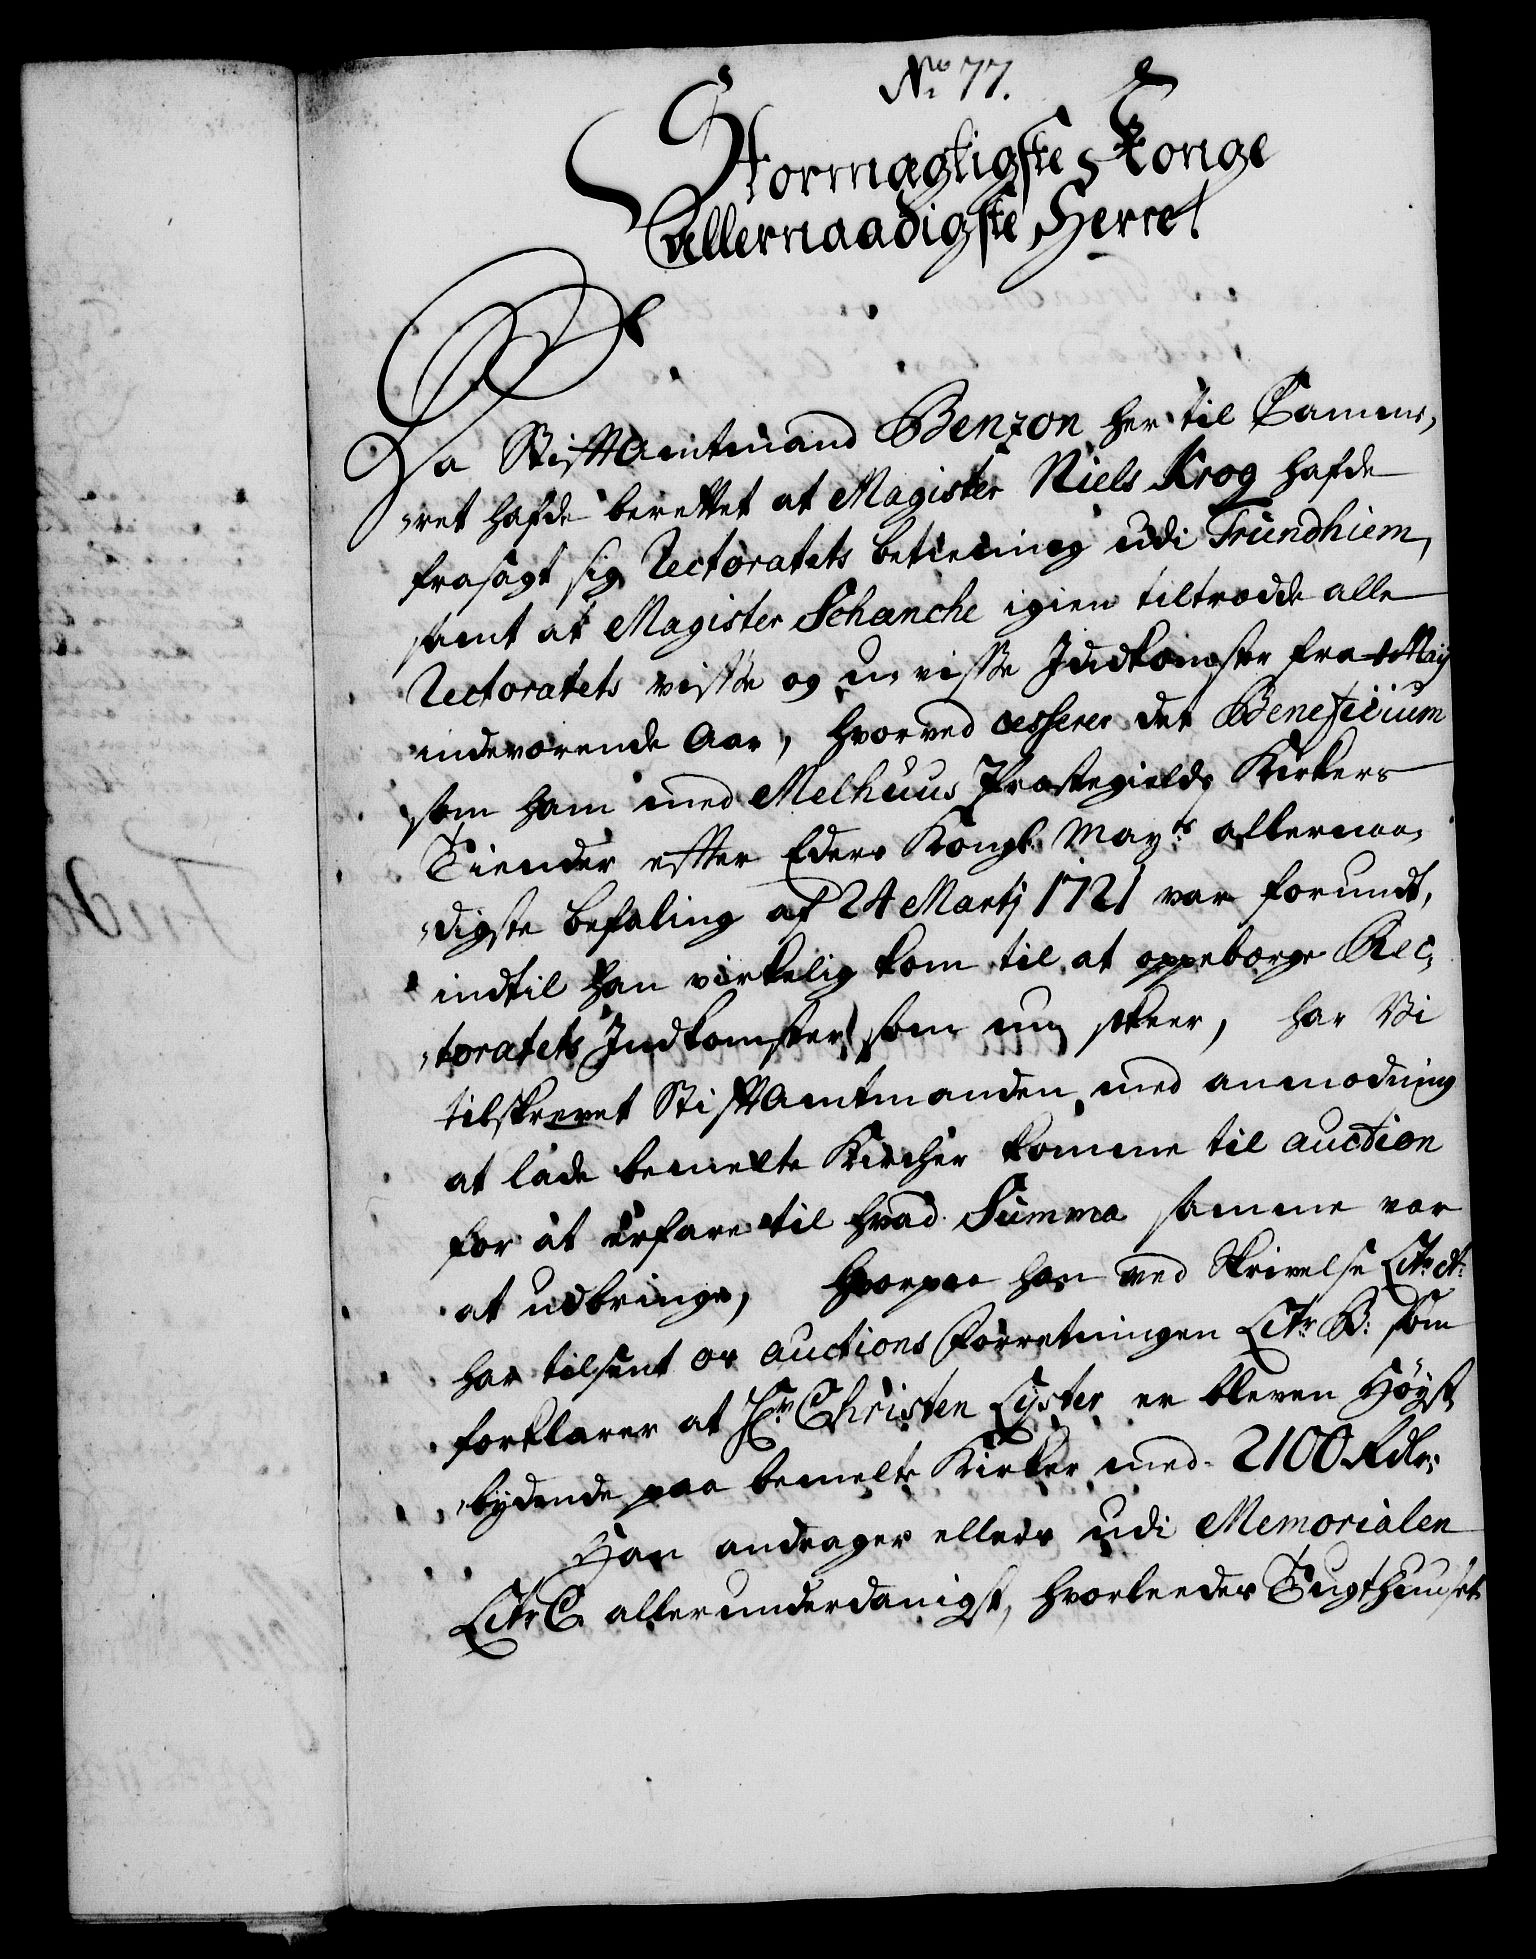 No 77.
Stormægtigste Konge
Allernaadigste Herre!
Da Stiftamtmand Benzon her til Cammer,
,ret hafde berettet at Magister Niels Krog hafde
frasagt sig Rectoratets betiening udi Trundhiem,
samt at Magister Schanche igien tiltrædde alle
Rectoratets visse og u-visse Indkomster fra Maij
indeværende Aar, hvorved cesserer det Beneficium
som ham med Melhuus Præstegields Kirkers
Tiender efter Eders Kongl. Mayts allernaa,
,digste befaling af 24 Martij 1721 var forundt,
indtil han virkelig kom til at oppeborge Rec,
,toratets Indkomster som nu skeer, har Vi
tilskrevet Stiftamtmanden med anmodning
at lade bemelte Kircher komme til auction
for at erfare til hvad Summa samme var
at udbringe, hvorpaa han ved Skrivelse Litr. A:
har tilsent os auctions Forretningen Litr. B: som
forklarer at Hr Christen Lyster er bleven Høyst
bydende paa bemelte Kirker med 2100 Rdlr:
Han andrager ellers udi Memorialen
Litr C allerunderdanigst, hvorledes Tugthuuset